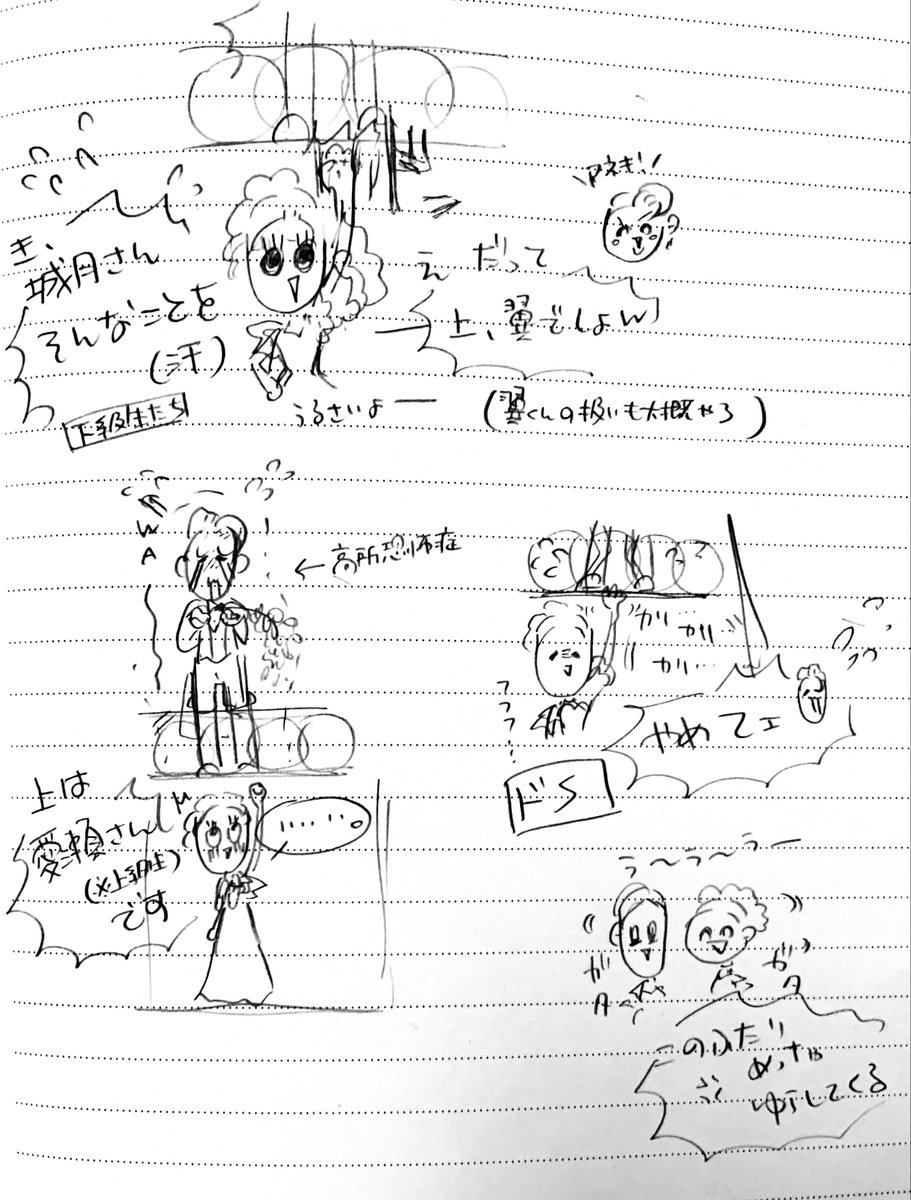 アネキ!!
き、
城月さん
そんなことを
(汗)
下級生たち
え だって
上、翼でしょん
うるさいよー
(翼くんの扱いも大概やろ)
WA
← 高所恐怖症
ガリ… ガリ… ガリ…
フフフ…
やめてェ
ドS
上は
愛瀬さん
(※上級生)
です
……。
う〜ら〜らー
ガタ
ガタ
このふたり
めっちゃ
ゆらしてくる